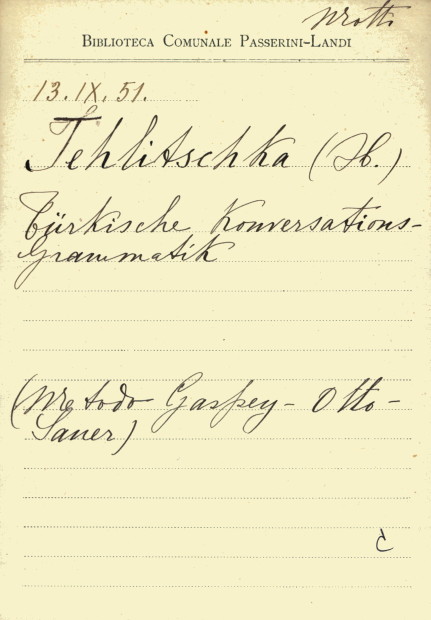 Motti
BIBLIOTECA COMUNALE PASSERINI-LANDI
13.IX.51.
Jehlitschka (H.)
Türkische Konversations-
Grammatik
(Metodo Gaspey-Otto-
Sauer)